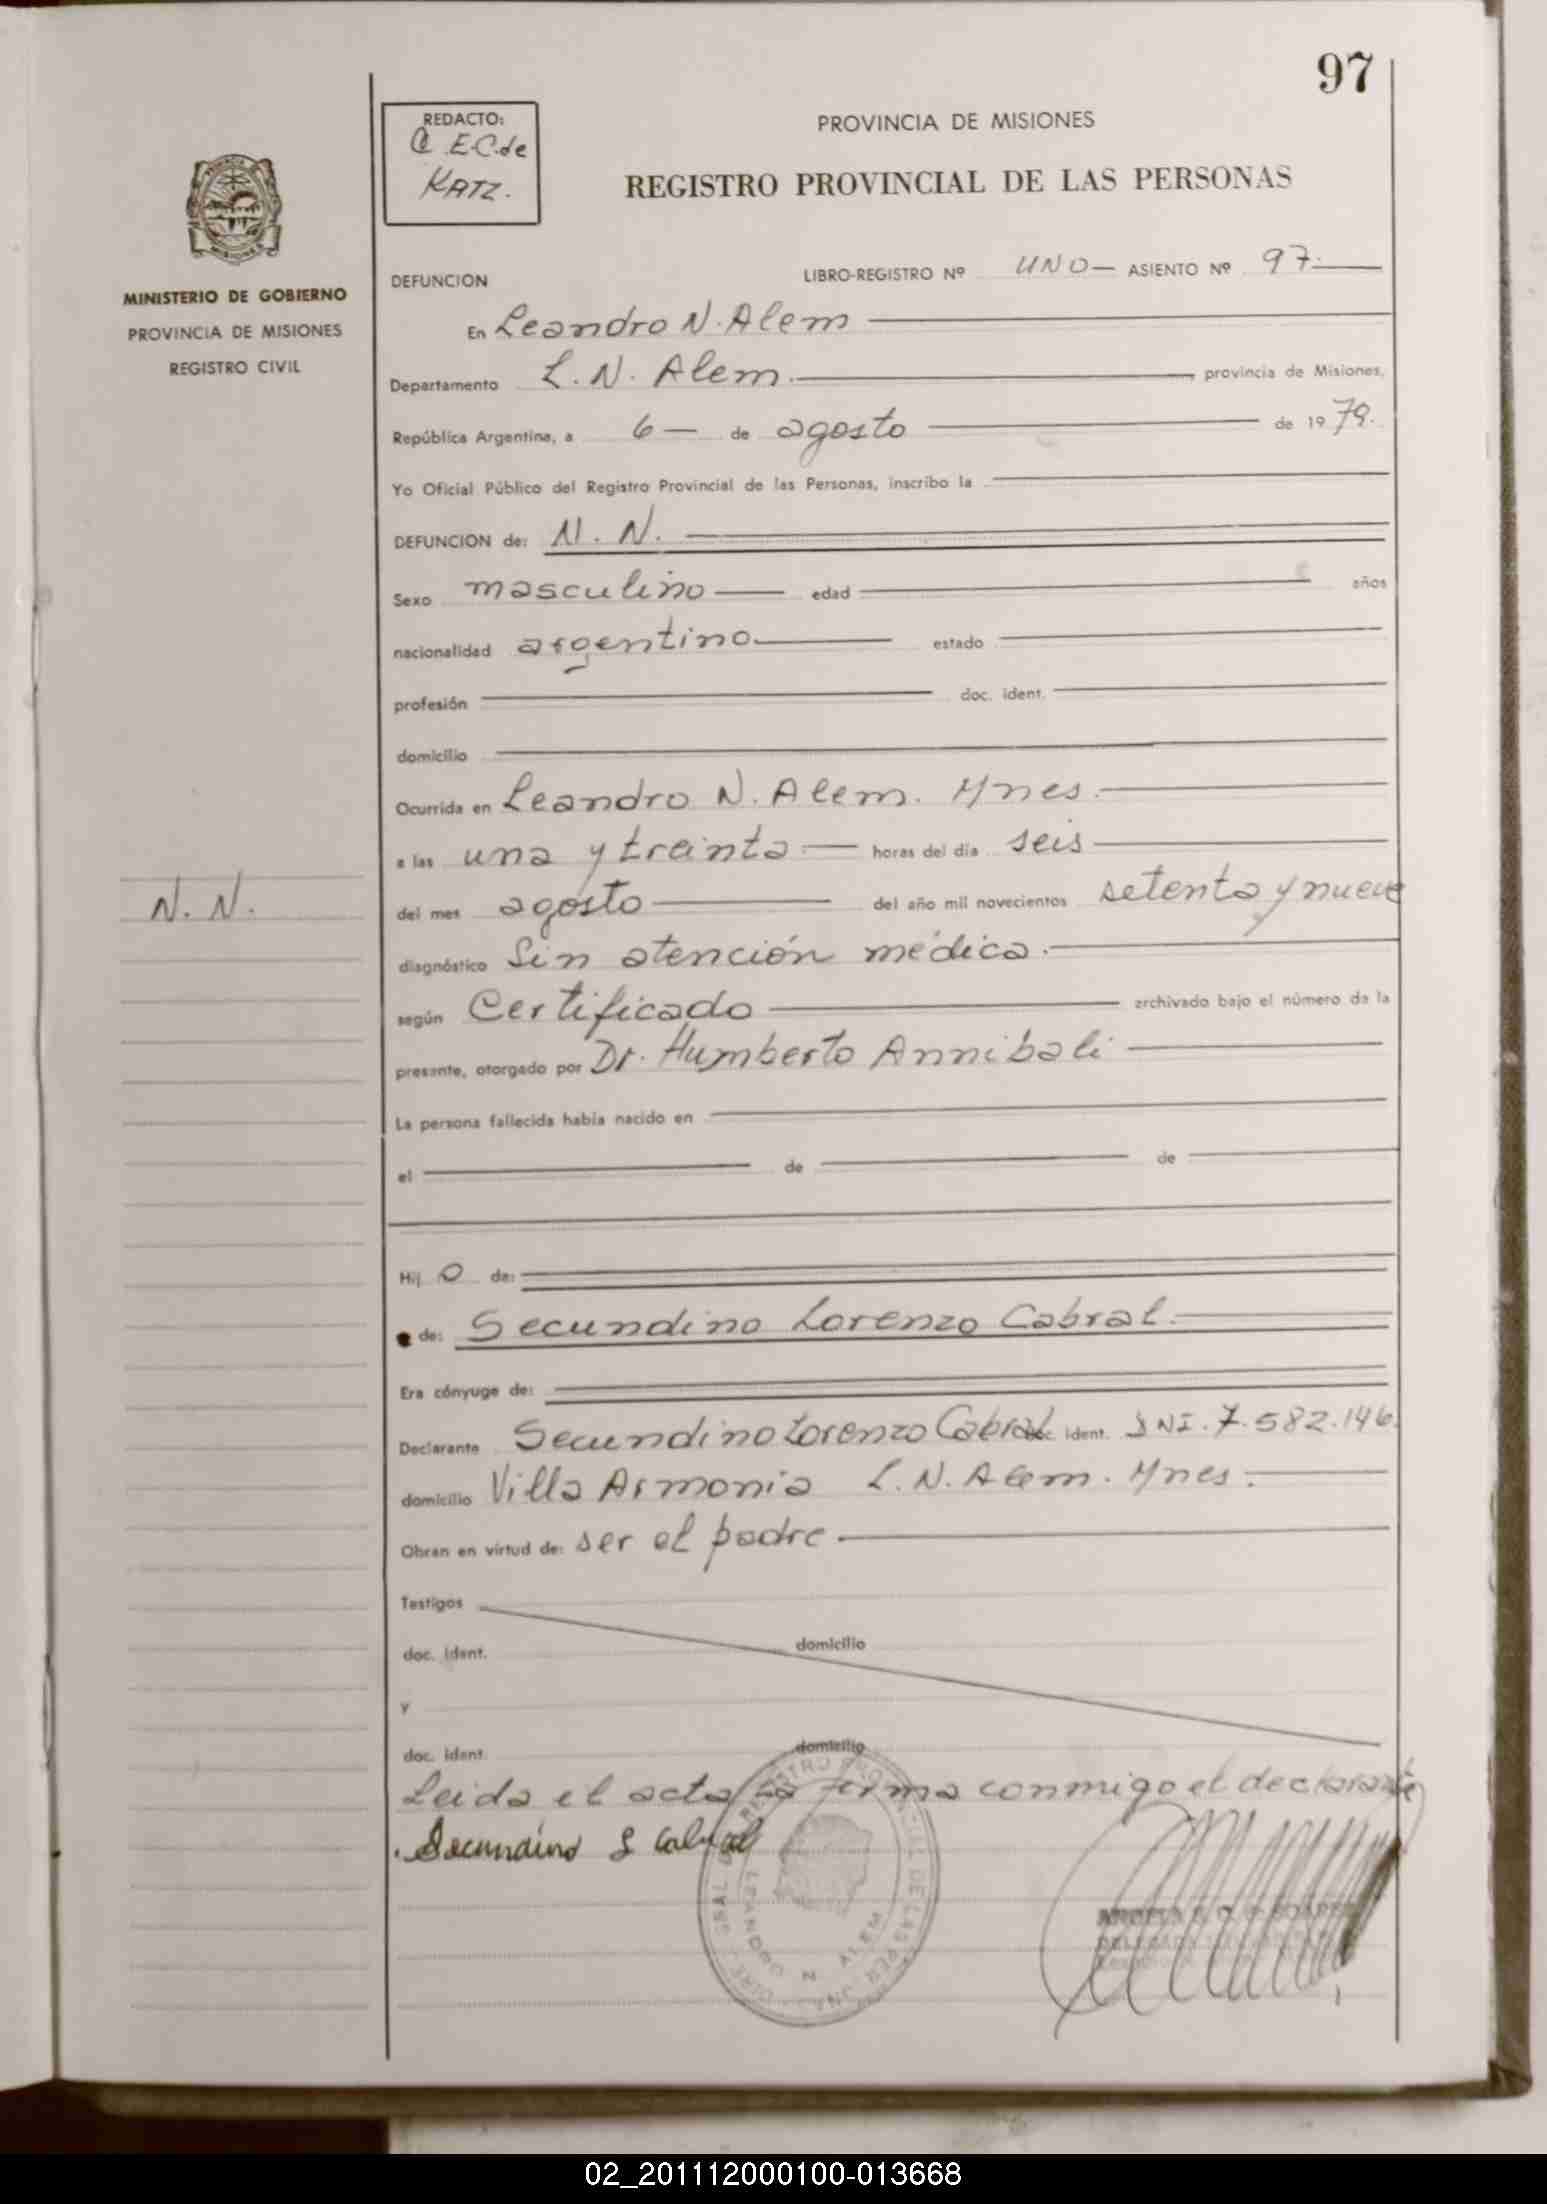 97
REDACTO:
E.C. de
KATZ.
PROVINCIA DE MISIONES
REGISTRO PROVINCIAL DE LAS PERSONAS
MISIONES
MINISTERIO DE GOBIERNO
PROVINCIA DE MISIONES
REGISTRO CIVIL
DEFUNCION LIBRO-REGISTRO Nº UNO— ASIENTO Nº 97.
En Leandro N. Alem
Departamento L. N. Alem. provincia de Misiones,
República Argentina, a 6— de agosto de 1979.
Yo Oficial Público del Registro Provincial de las Personas, inscribo la
DEFUNCION de: N. N.
Sexo masculino edad años
nacionalidad argentino estado
profesión doc. ident.
domicilio
Ocurrida en Leandro N. Alem. Mnes.
a las una y treinta horas del día seis
N. N.
del mes agosto del año mil novecientos setenta y nueve
diagnóstico Sin atención médica.
según Certificado archivado bajo el número de la
presente, otorgado por Dr. Humberto Annibali
La persona fallecida había nacido en
el de de
Hij o de:
de: Secundino Lorenzo Cabral.
Era cónyuge de:
Declarante Secundino Lorenzo Cabral doc. ident. DNI. 7.582.146.
domicilio Villa Armonia L. N. Alem. Mnes.
Obran en virtud de: ser el padre.
Testigos
doc. ident. domicilio
y
doc. ident. domicilio
Leida el acta la firma conmigo el declarante
. Secundino L Cabral
LEANDRO N. ALEM
02_201112000100-013668